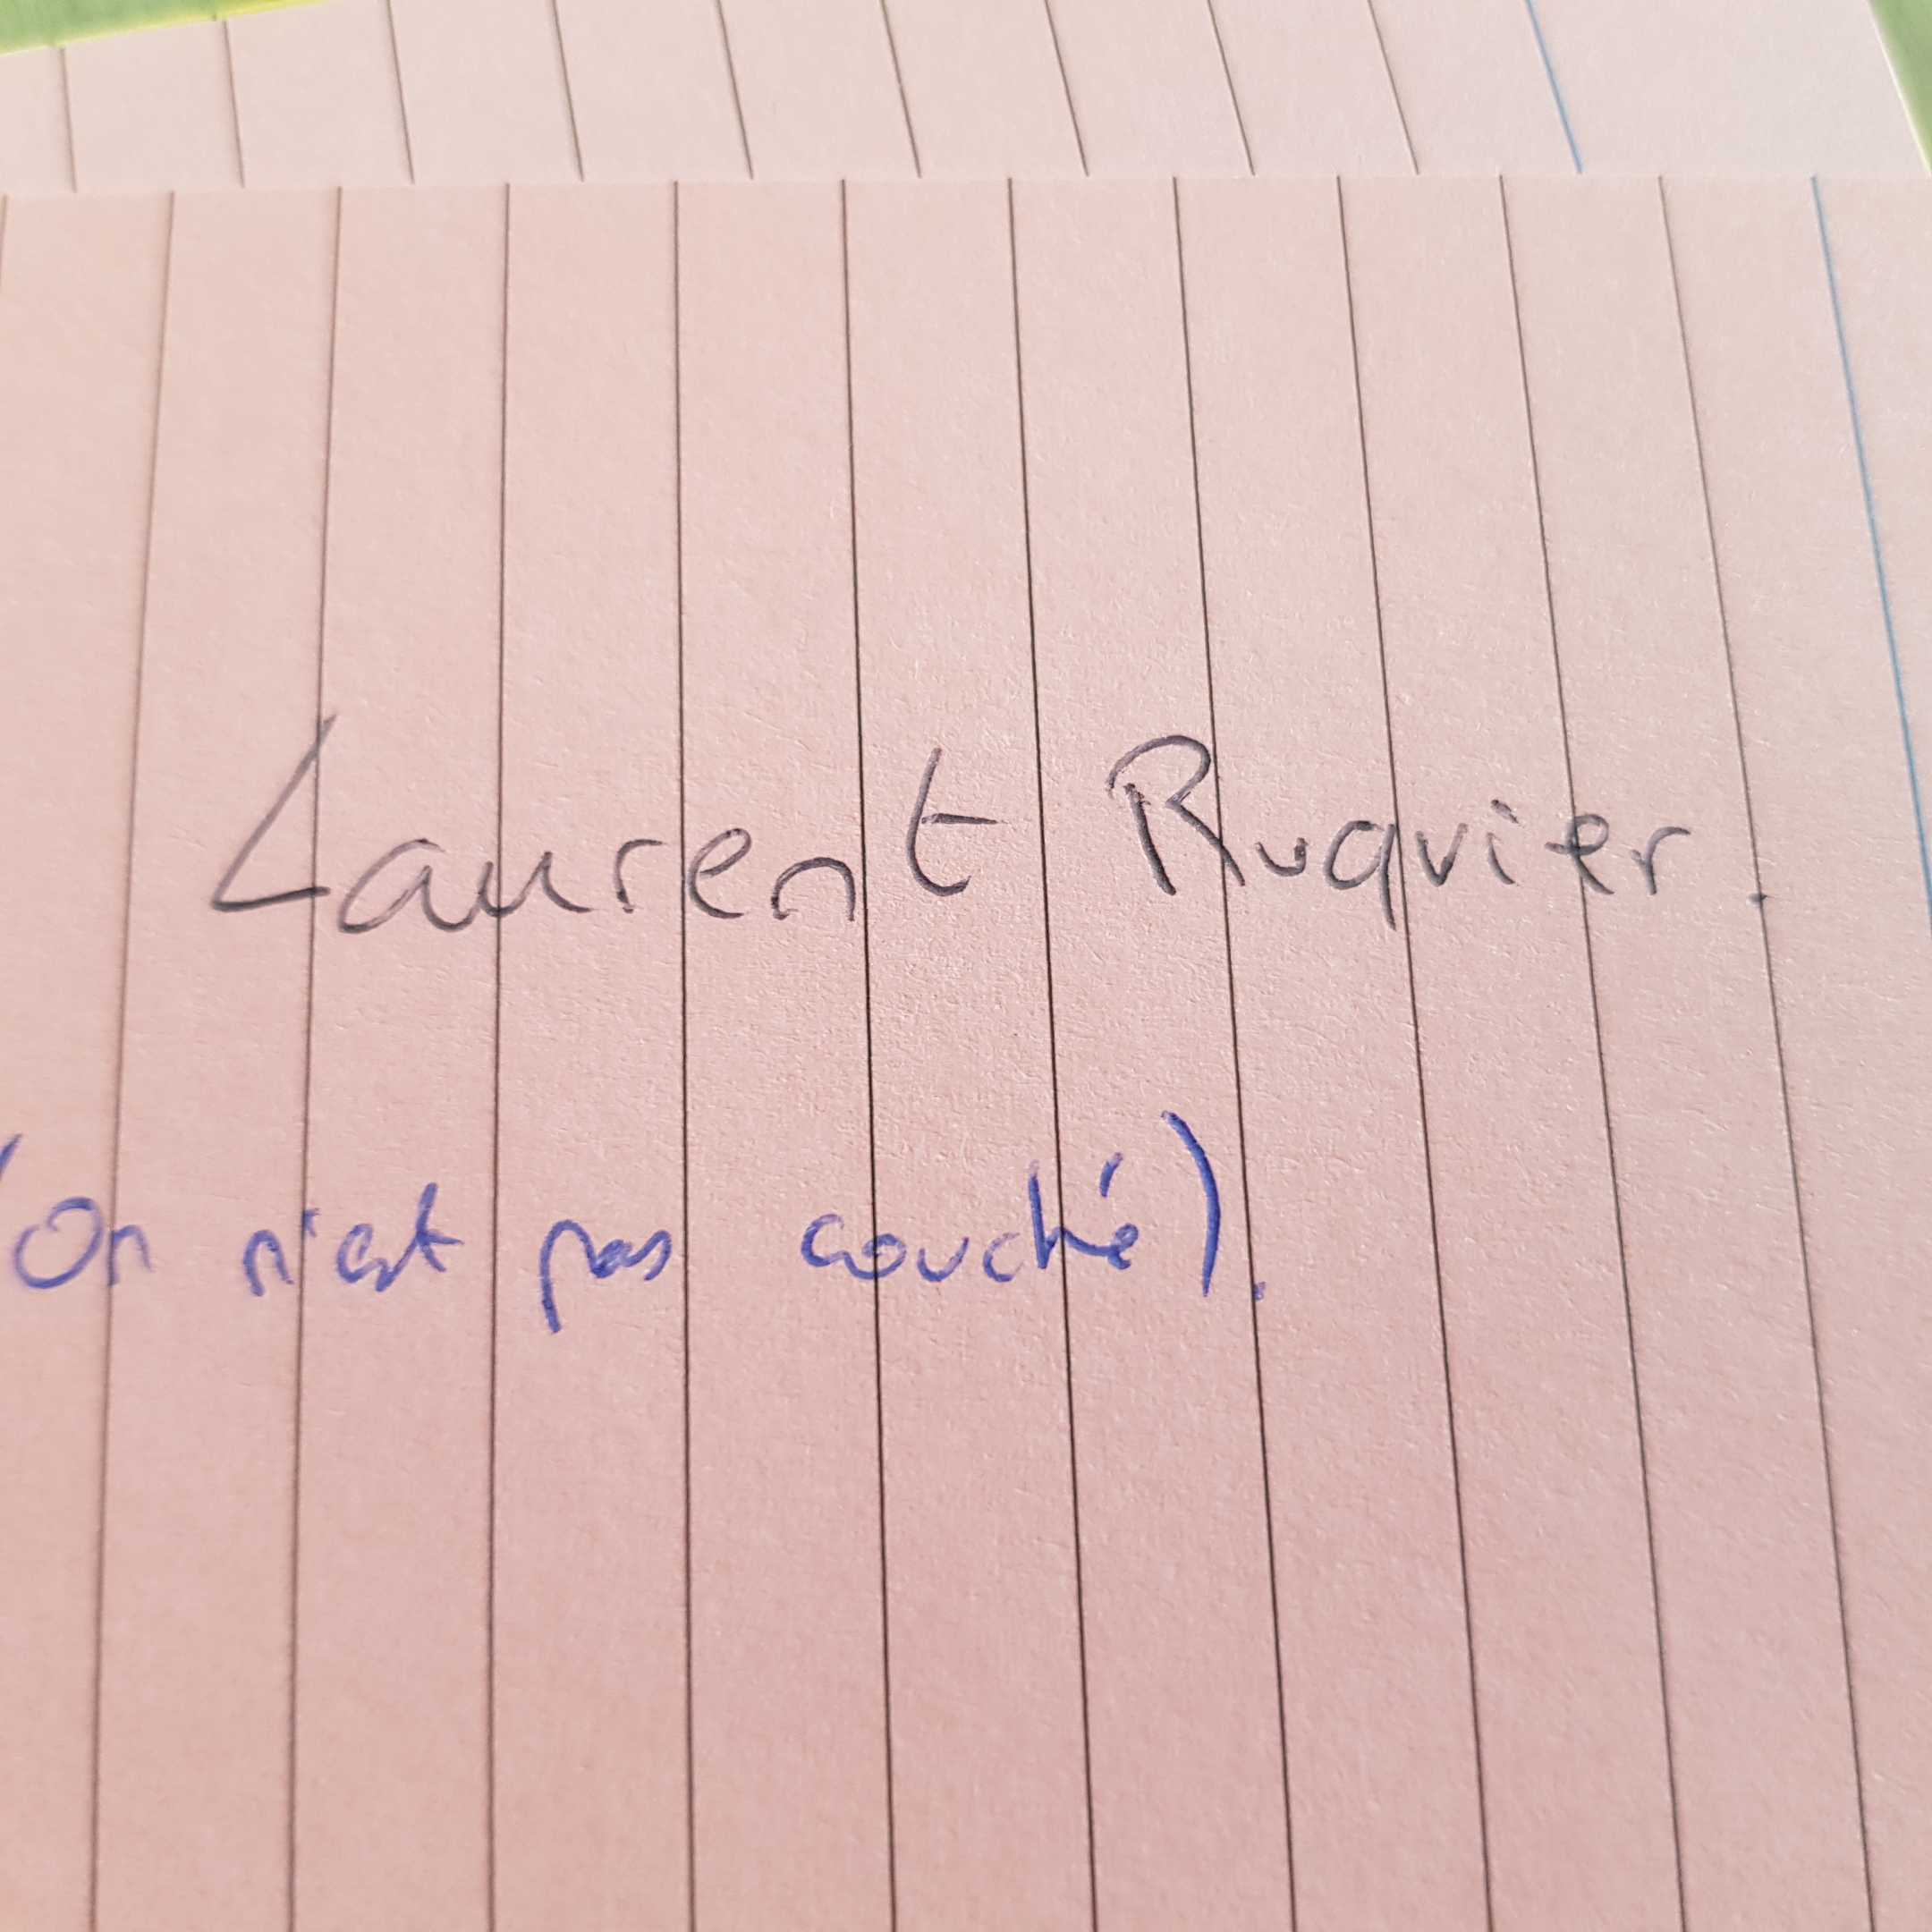 Laurent Ruquier.
(On n'est pas couché).